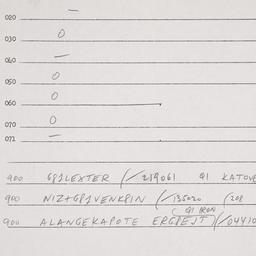 020 —
030 0
060 —
050 0
060 0
070 0
072 —
900 GP1LEXTER (/219061 91 KATOVE
900 NIZ+GP1VENKPIN (/135020 (208
(91 IRON
900 ALANGEKAPOTE ERGPEJT)(/04410